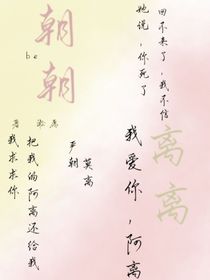 朝朝
be
离离
她说，你死了
回不来了，我不信
我爱你，阿离
严朝
莫离
我求求你
把我的阿离还给我